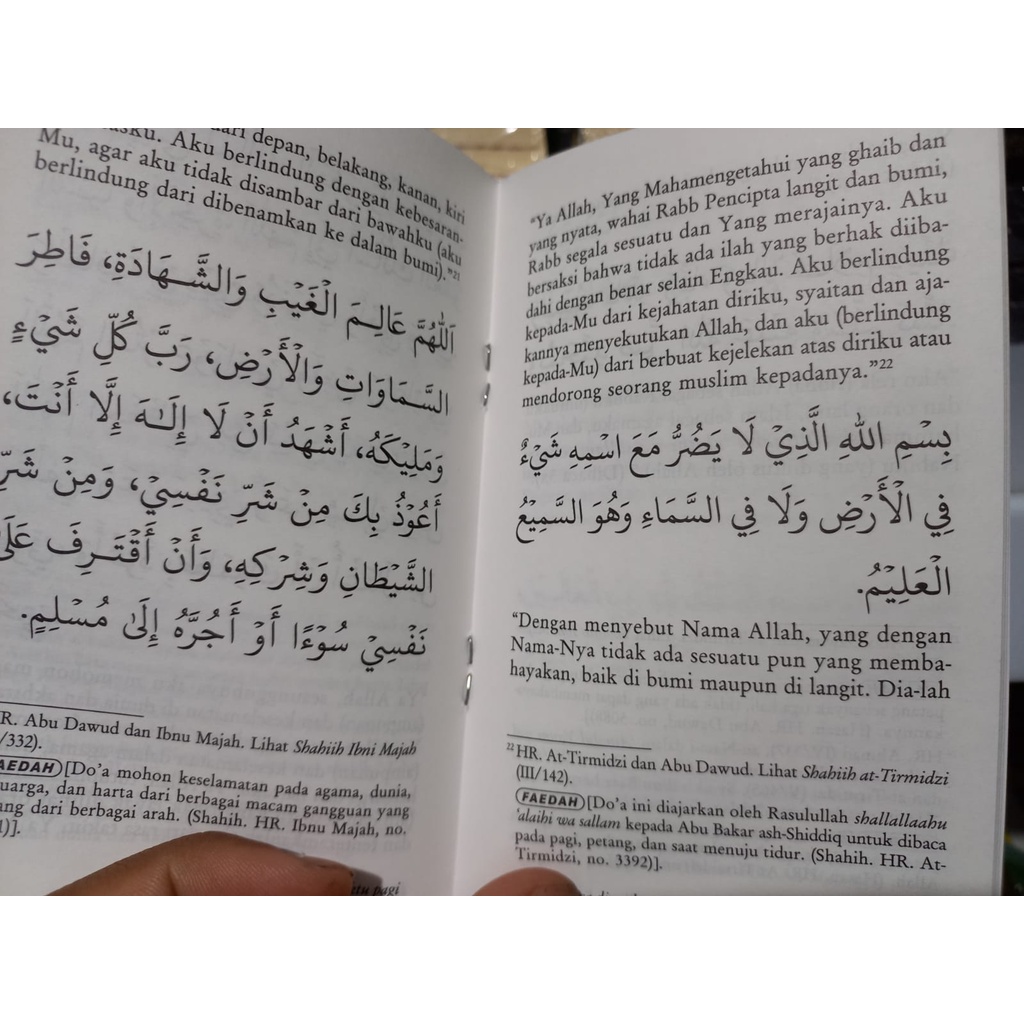 dari depan, belakang, kanan, kiri
Aku berlindung dengan kebesaran-
Mu, agar aku tidak disambar dari bawahku (aku
berlindung dari dibenamkan ke dalam bumi)."²¹
اَللّٰهُمَّ عَالِـمَ الْغَيْبِ وَالشَّـهَادَةِ، فَاطِرَ
السَّـمَاوَاتِ وَالْأَرْضِ، رَبَّ كُلِّ شَيْءٍ
وَمَلِيْكَهُ، أَشْهَدُ أَنْ لَا إِلَـٰهَ إِلَّا أَنْتَ،
أَعُوْذُ بِكَ مِنْ شَرِّ نَفْسِيْ، وَمِنْ شَرِّ
الشَّيْطَانِ وَشِرْكِهِ، وَأَنْ أَقْتَـرِفَ عَلَى
نَفْسِيْ سُوْءًا أَوْ أَجُرَّهُ إِلَىٰ مُسْلِمٍ.
R. Abu Dawud dan Ibnu Majah. Lihat Shahiih Ibni Majah
/332).
AEDAH [Do'a mohon keselamatan pada agama, dunia,
uarga, dan harta dari berbagai macam gangguan yang
ang dari berbagai arah. (Shahih. HR. Ibnu Majah, no.
1)].
itu pagi
"Ya Allah, Yang Mahamengetahui yang ghaib dan
yang nyata, wahai Rabb Pencipta langit dan bumi,
Rabb segala sesuatu dan Yang merajainya. Aku
bersaksi bahwa tidak ada ilah yang berhak diiba-
dahi dengan benar selain Engkau. Aku berlindung
kepada-Mu dari kejahatan diriku, syaitan dan aja-
kannya menyekutukan Allah, dan aku (berlindung
kepada-Mu) dari berbuat kejelekan atas diriku atau
mendorong seorang muslim kepadanya."²²
بِسْمِ اللهِ الَّذِيْ لَا يَضُرُّ مَعَ اسْمِهِ شَيْءٌ
فِي الْأَرْضِ وَلَا فِي السَّمَاءِ وَهُوَ السَّمِيْعُ
الْعَلِيْمُ.
"Dengan menyebut Nama Allah, yang dengan
Nama-Nya tidak ada sesuatu pun yang memba-
hayakan, baik di bumi maupun di langit. Dia-lah
²² HR. At-Tirmidzi dan Abu Dawud. Lihat Shahiih at-Tirmidzi
(III/142).
FAEDAH [Do'a ini diajarkan oleh Rasulullah shallallaahu
'alaihi wa sallam kepada Abu Bakar ash-Shiddiq untuk dibaca
pada pagi, petang, dan saat menuju tidur. (Shahih. HR. At-
Tirmidzi, no. 3392)].